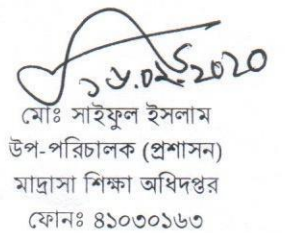 ১৬.০২.2020
মোঃ সাইফুল ইসলাম
উপ-পরিচালক (প্রশাসন)
মাদ্রাসা শিক্ষা অধিদপ্তর
ফোনঃ ৪১০৩০১৬৩